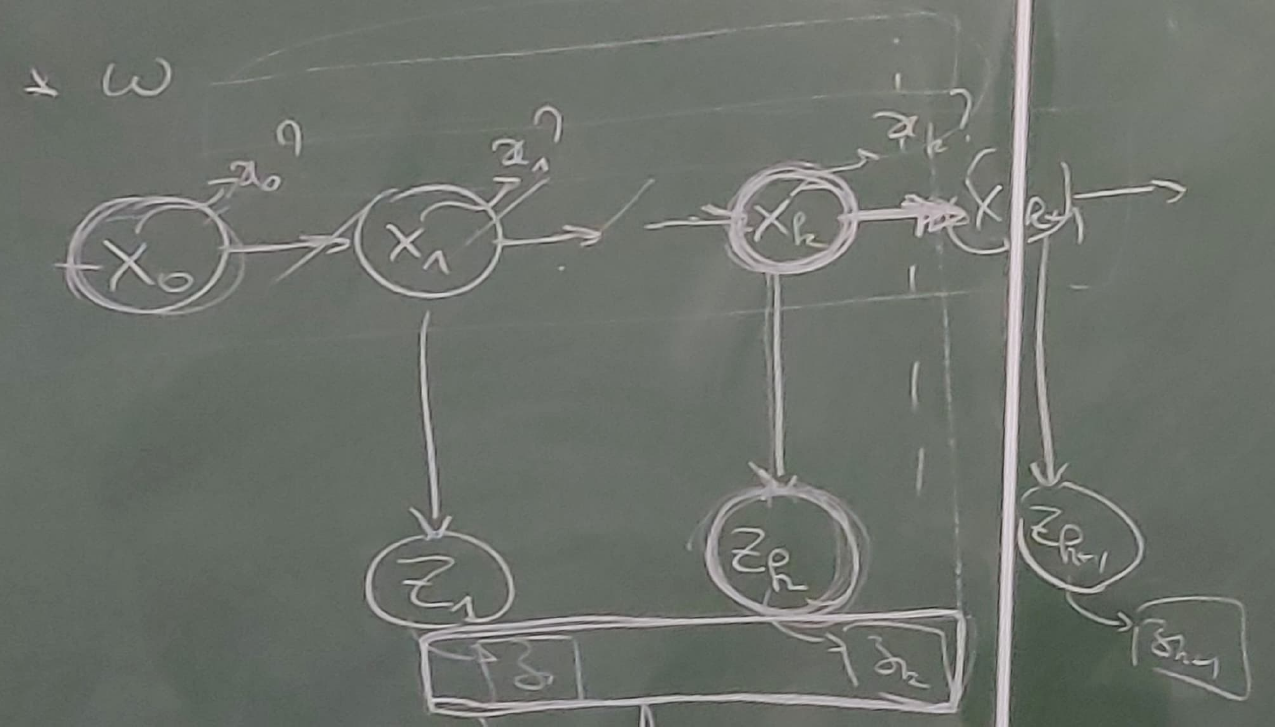 ω
x₀? x₁? xₖ?
X₀ X₁ Xₖ Xₖ₊₁
Z₁ Zₖ Zₖ₊₁
z₁ zₖ zₖ₊₁